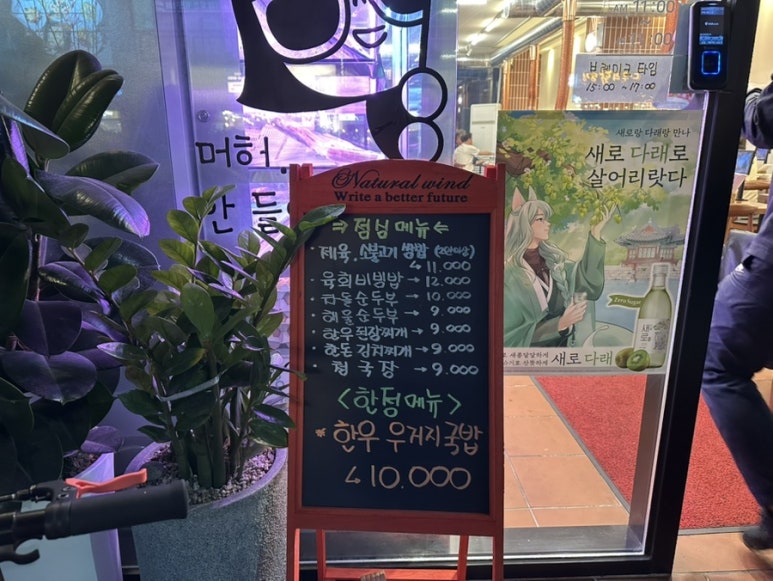 AM 11:00
11:00
브레이크 타임
15:00 ~ 17:00
머허.
안 들
Natural wind
Write a better future
⇒ 점심 메뉴 ⇐
· 제육, 소불고기 쌈밥 (2인이상)
↳ 11,000
· 육회비빔밥 → 12,000
순두부 → 10,000
· 해물순두부 → 9,000
· 한우된장찌개 → 9,000
· 한돈 김치찌개 → 9,000
· 청국장 → 9,000
<한정메뉴>
* 한우 우거지국밥
↳ 10,000
새로랑 다래랑 만나
새로 다래로
살어리랏다
Zero Sugar
새로
새로 다래